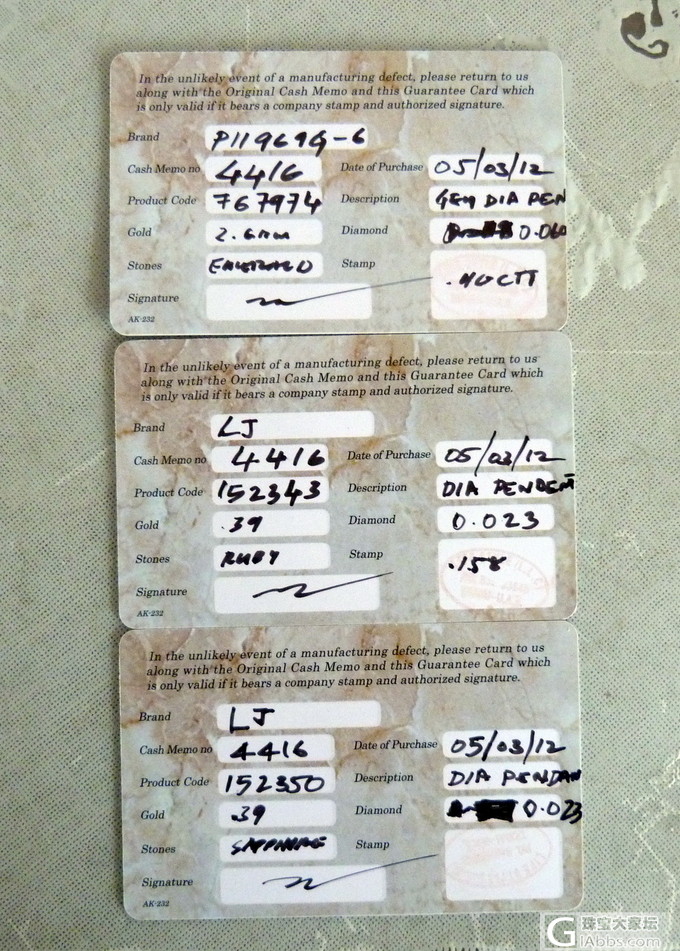 In the unlikely event of a manufacturing defect, please return to us
along with the Original Cash Memo and this Guarantee Card which
is only valid if it bears a company stamp and authorized signature.
Brand P11969G-6
Cash Memo no 4416 Date of Purchase 05/03/12
Product Code 767974 Description GEM DIA PEN
Gold 2.6 Diamond 0.060
Stones EMERALD Stamp
Signature
AK-232
In the unlikely event of a manufacturing defect, please return to us
along with the Original Cash Memo and this Guarantee Card which
is only valid if it bears a company stamp and authorized signature.
Brand LJ
Cash Memo no 4416 Date of Purchase 05/03/12
Product Code 152343 Description DIA PENDENT
Gold .39 Diamond 0.023
Stones RUBY Stamp .158
Signature
AK-232
In the unlikely event of a manufacturing defect, please return to us
along with the Original Cash Memo and this Guarantee Card which
is only valid if it bears a company stamp and authorized signature.
Brand LJ
Cash Memo no 4416 Date of Purchase 05/03/12
Product Code 152350 Description DIA PENDAN
Gold .39 Diamond 0.023
Stones SAPPHIRE Stamp
Signature
AK-232
珠宝大家坛
GIAbbs.com